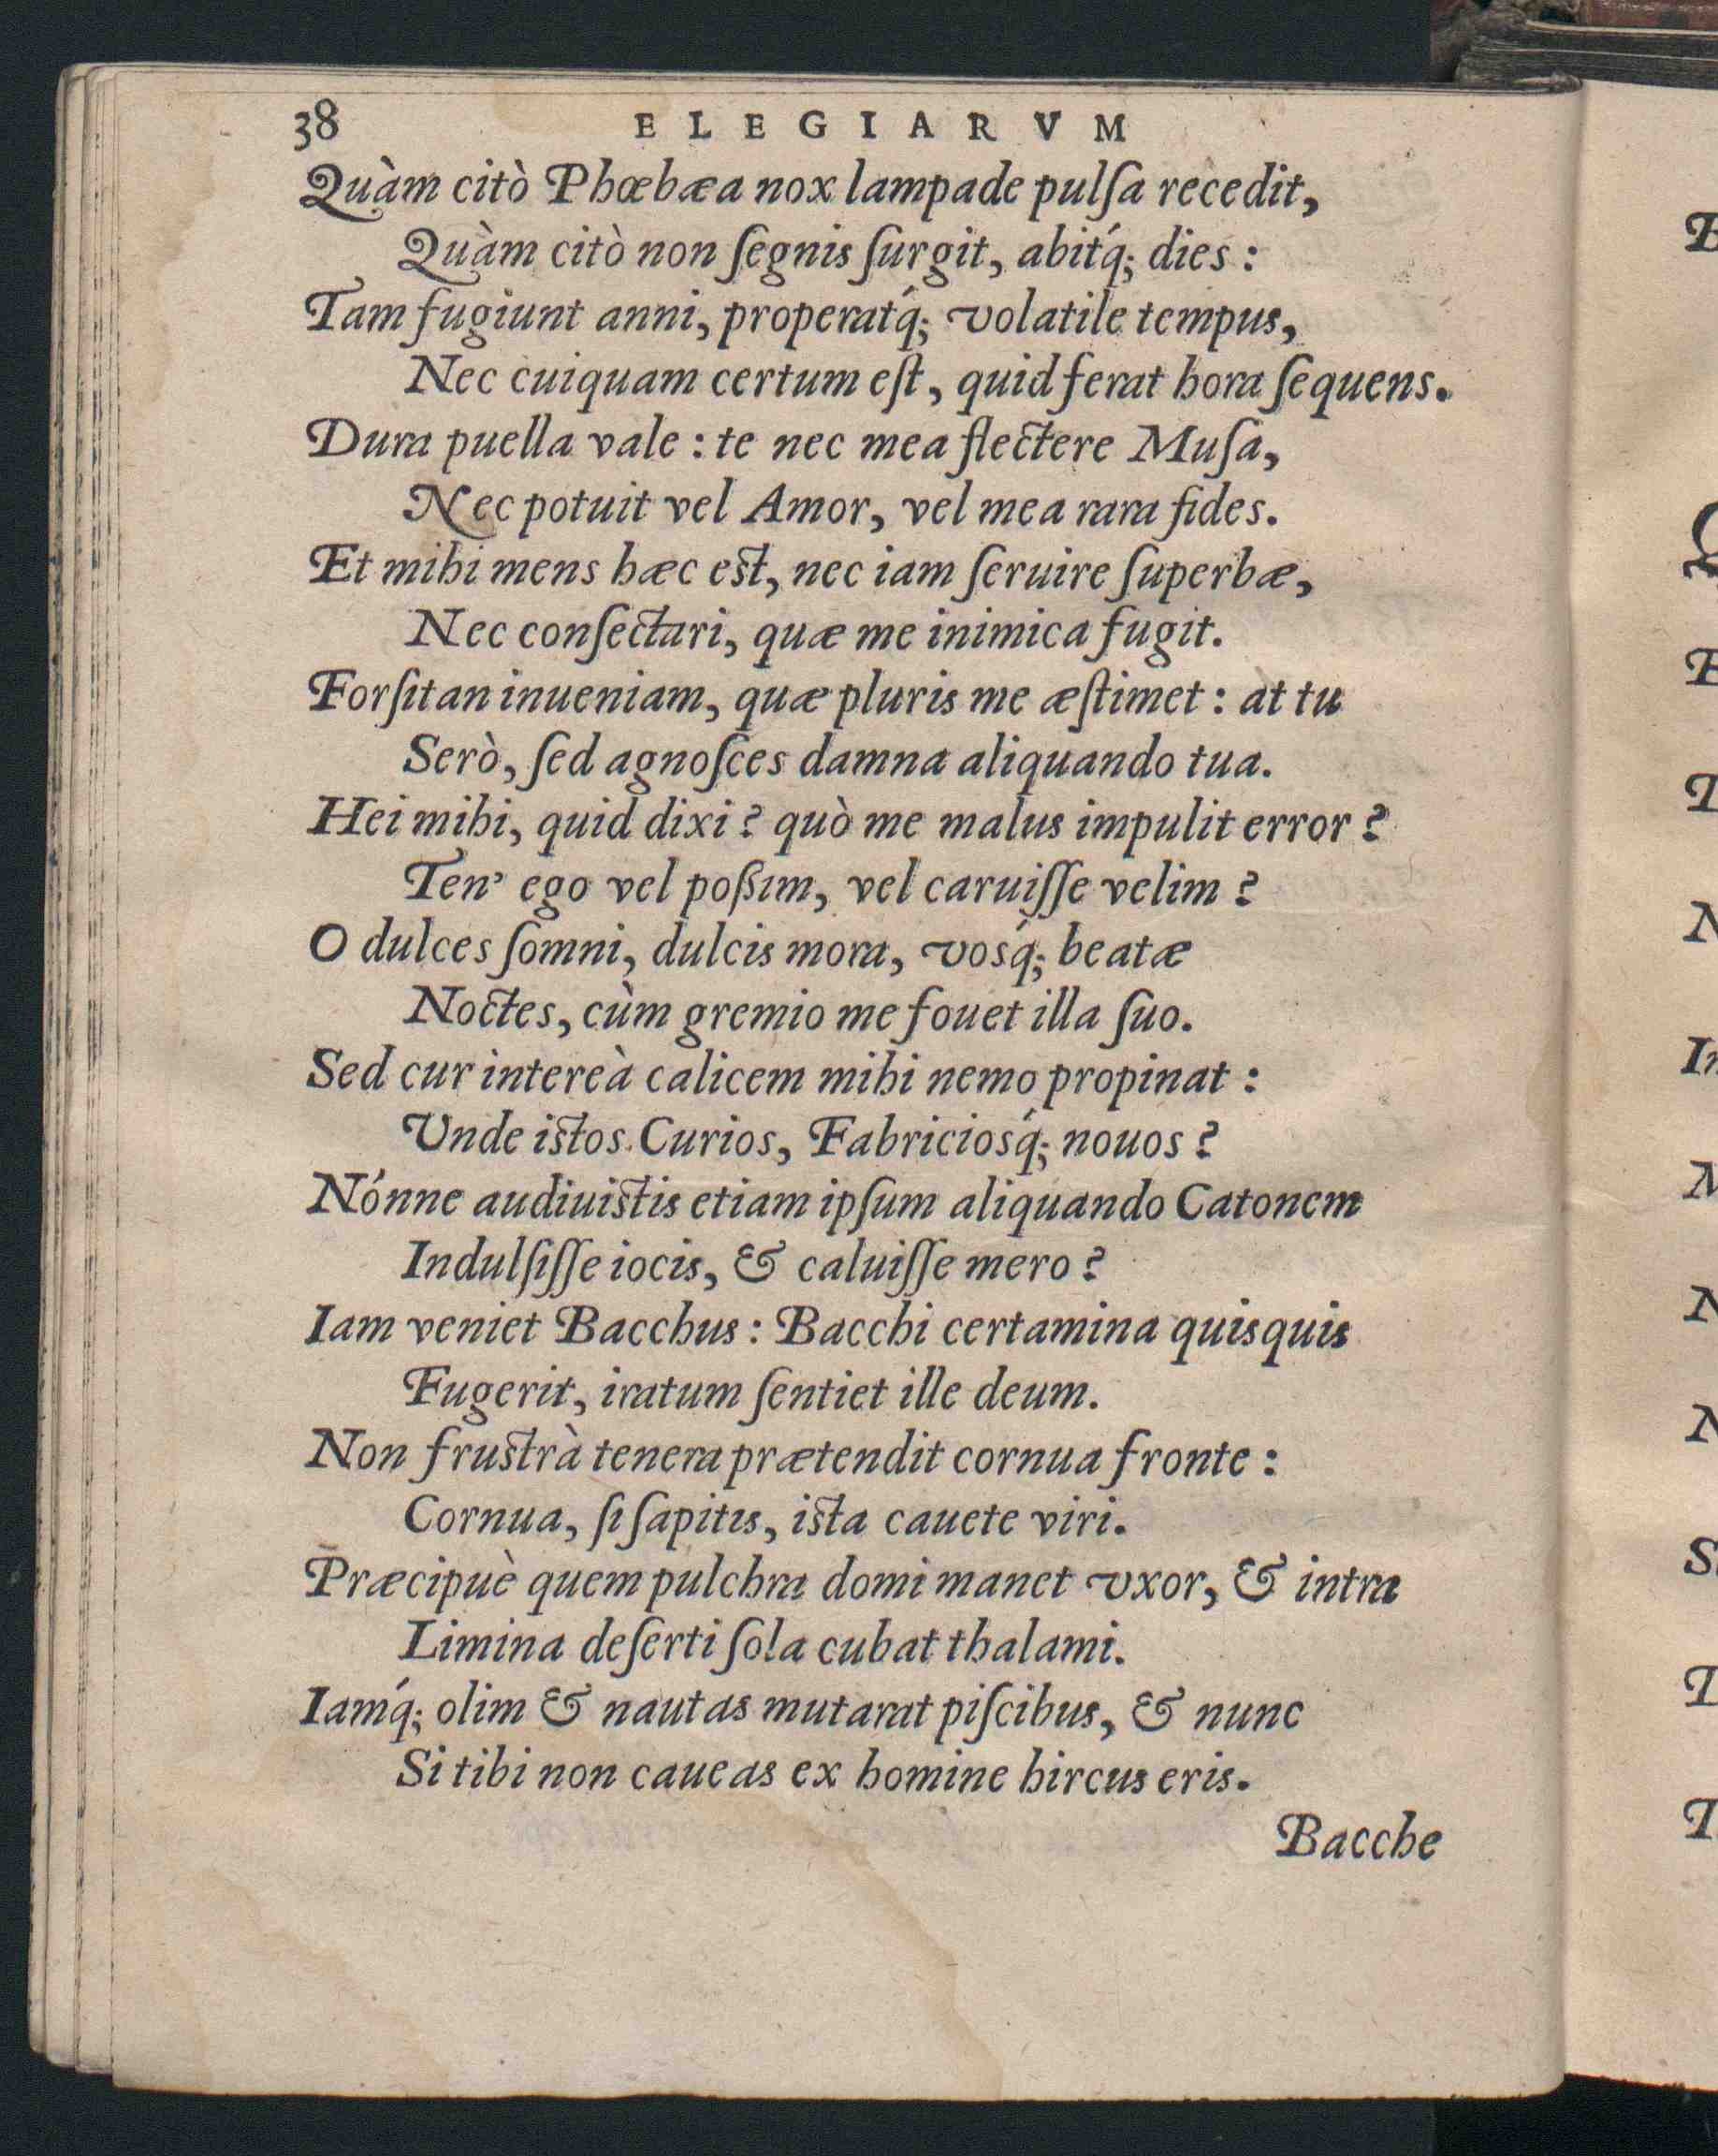 38 ELEGIARVM
Quàm citò Phœbæa nox lampade pulſa recedit,
Quàm citò non ſegnis ſurgit, abitq́; dies :
Tam fugiunt anni, properatq́; volatile tempus,
Nec cuiquam certum eſt, quid ferat hora ſequens.
Dura puella vale : te nec mea flectere Muſa,
Nec potuit vel Amor, vel mea rara fides.
Et mihi mens hæc est, nec iam ſeruire ſuperbæ,
Nec conſectari, quæ me inimica fugit.
Forſitan inueniam, quæ pluris me æſtimet : at tu
Serò, ſed agnoſces damna aliquando tua.
Hei mihi, quid dixi ? quò me malus impulit error ?
Ten' ego vel poßim, vel caruiſſe velim ?
O dulces ſomni, dulcis mora, vosq́; beatæ
Noctes, cùm gremio me fouet illa ſuo.
Sed cur intereà calicem mihi nemo propinat :
Unde istos Curios, Fabriciosq́; nouos ?
Nónne audiuistis etiam ipſum aliquando Catonem
Indulſiſſe iocis, & caluiſſe mero ?
Iam veniet Bacchus : Bacchi certamina quisquis
Fugerit, iratum ſentiet ille deum.
Non frustrà tenera prætendit cornua fronte :
Cornua, ſi ſapitis, ista cauete viri.
Præcipuè quem pulchra domi manet vxor, & intra
Limina deſerti ſola cubat thalami.
Iamq́; olim & nautas mutarat piſcibus, & nunc
Si tibi non caueas ex homine hircus eris.
Bacche